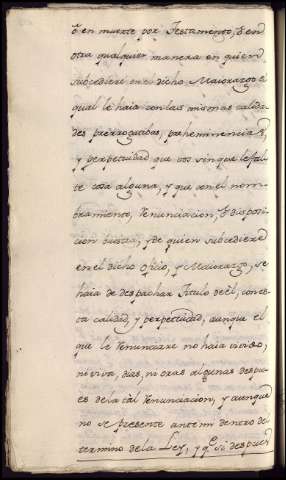 ò en muerte por Testamento, ò en
otra qualquier manera en quien
subcediere en el dicho Maiorazgo el
qual le haia con las mismas calida
des prerrogatibas, prehemminencias,
y perpetuidad que vos sin que le fal
te cosa alguna, y que con el nom
bramiento, renunciacion, ò disposi
cion buestra, y de quien subcediere
en el dicho oficio, y Maiorazgo, se
haia de despachar Titulo de èl, con es
ta calidad, y perpetuidad, aunque el
que le renunciare no haia vivido,
ni viva, dias, ni oras algunas despu
es de la tàl renunciacion, y aunque
no se presente ante mi dentro del
termino de la Ley, y qe. si despues